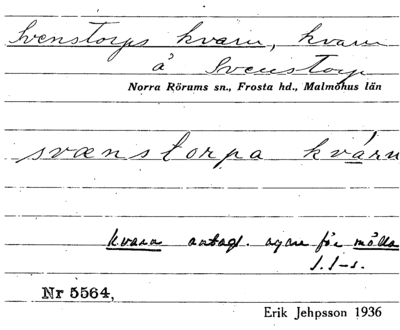 Svenstorps kvarn, kvarn
å Svenstorp
Norra Rörums sn., Frosta hd., Malmöhus län
svænstorpa kvárn
kvarn antagl. agare för mölla
Nr 5564,
Erik Jehpsson 1936